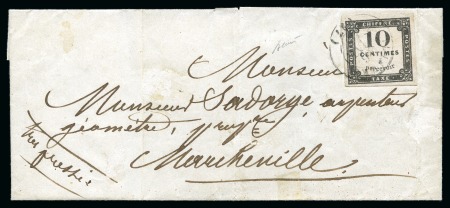 CHIFFRE
10
CENTIMES
à
percevoir
TAXE
POSTES
Monsieur
Monsieur Sadorge, arpenteur
géomètre,
Marcheville.
très pressée